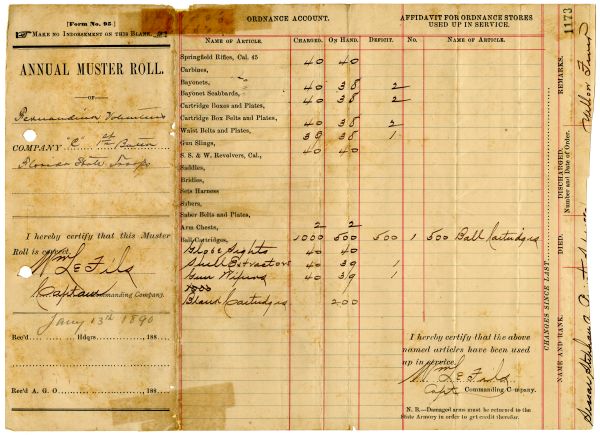 [Form No. 95]
MAKE NO INDORSEMENT ON THIS BLANK.
ANNUAL MUSTER ROLL.
OF
Fernandina Volunteers
COMPANY "C" 1st Battn
Florida State Troops
I hereby certify that this Muster
Roll is correct.
Wm LeFils
Captain Commanding Company.
Jany 13th 1890
Rec'd Hdqrs. 188
Rec'd A. G. O 188
ORDNANCE ACCOUNT.
NAME OF ARTICLE. CHARGED. ON HAND. DEFICIT.
Springfield Rifles, Cal. 45 40 40
Carbines,
Bayonets, 40 38 2
Bayonet Scabbards,
Cartridge Boxes and Plates, 40 38 2
Cartridge Box Belts and Plates,
Waist Belts and Plates, 40 38 2
Gun Slings, 39 38 1
S. S. & W. Revolvers, Cal., 40 40
Saddles,
Bridles,
Sets Harness
Sabers,
Saber Belts and Plates,
Arm Chests, 2 2
Ball Cartridges, 1000 500 500
Globe Sights 40 40
Shell Extractors 40 39 1
Gun Wipers 40 39 1
Blank Cartridges 200
AFFIDAVIT FOR ORDNANCE STORES
USED UP IN SERVICE.
No. NAME OF ARTICLE.
1 500 Ball Cartridges
I hereby certify that the above
named articles have been used
up in service.
Wm LeFils
Capt Commanding Company.
N. B.—Damaged arms must be returned to the
State Armory in order to get credit therefor.
1173
REMARKS.
DISCHARGED.
Number and Date of Order.
DIED.
CHANGES SINCE LAST
NAME AND RANK.